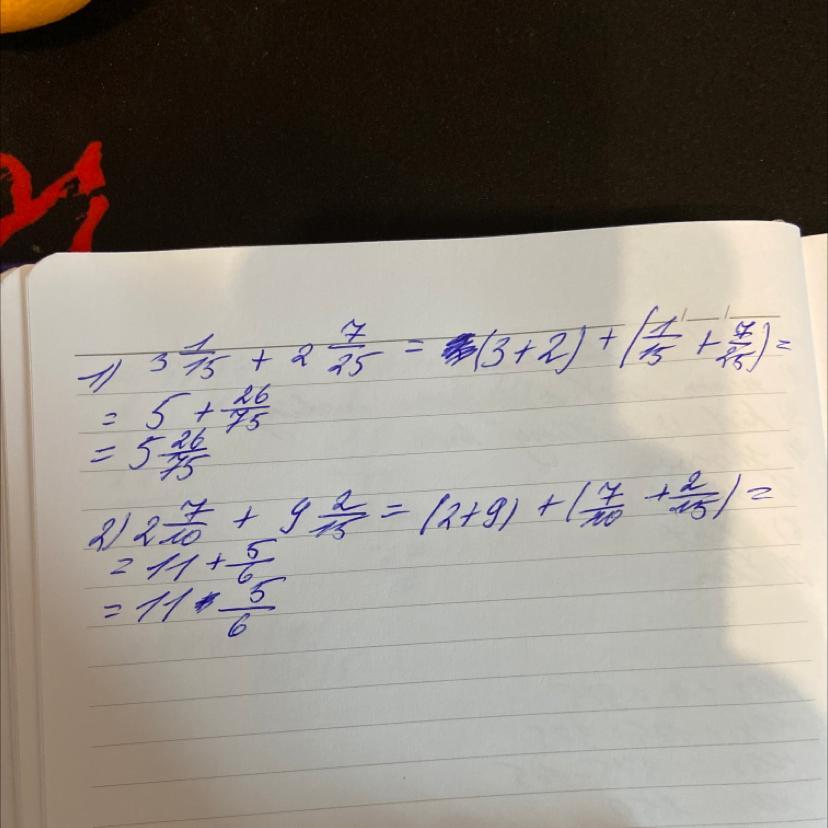 1) 3 1/15 + 2 7/25 = (3+2) + (1/15 + 7/25) =
= 5 + 26/75
= 5 26/75
2) 2 7/10 + 9 2/15 = (2+9) + (7/10 + 2/15) =
= 11 + 5/6
= 11 5/6